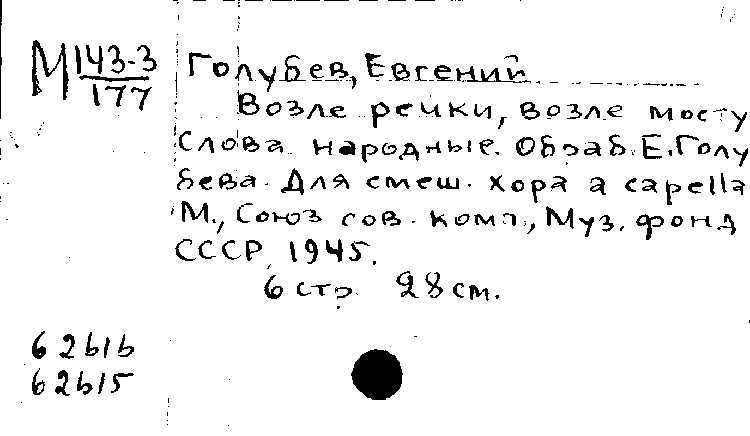 М 143-3
177
Голубев, Евгений
Возле речки, возле мосту
Слова народные. Обраб. Е. Голу
бева. Для смеш. хора a capella
М., Союз сов. комп., Муз. фонд
СССР, 1945.
6 стр. 28 см.
62616
62615